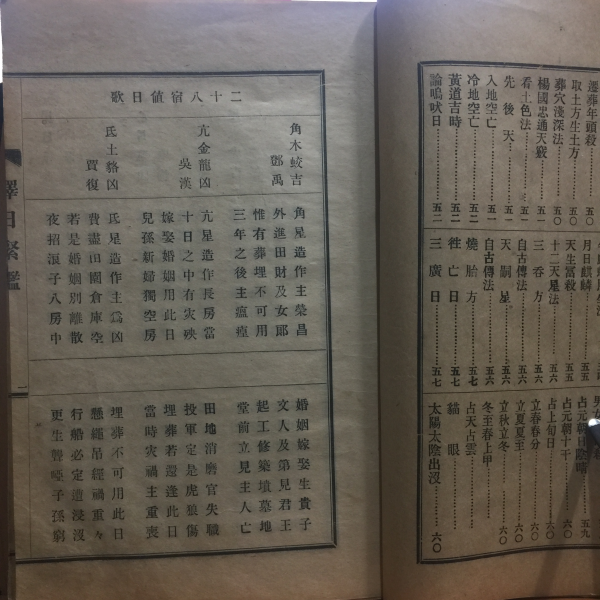 遷葬年頭殺……五〇
取土方生土方……五〇
葬穴淺深法……五〇
楊國忠通天竅……五一
看土色法……五一
先後天……五一
入地空亡……五一
冷地空亡……五二
黃道吉時……五二
論鳴吠日……五二
月日麒麟
天生富殺
十二天星法……五六
自古傳法……五六
三吞方……五六
天嗣星……五六
自古傳法……五七
燒胎方……五七
往亡日……五七
三廣日……五七
占元朝日陰晴……五九
占元朝十干……六〇
占上旬日……六〇
立春春分……六〇
立夏夏至……六〇
立秋立冬……六〇
冬至春上甲……六〇
占天占雲……六〇
貓眼……六〇
太陽太陰出沒……六〇
二十八宿值日歌
角木蛟吉 鄧禹
角星造作主榮昌
外進田財及女郎
惟有葬埋不可用
三年之後主瘟瘟
婚姻嫁娶生貴子
文人及第見君王
起工修築墳墓地
堂前立見主人亡
亢金龍凶 吳漢
亢星造作長房當
十日之中有灾殃
嫁娶婚姻用此日
兒孫新婦獨空房
田地消磨官失職
投軍定是虎狼傷
埋葬若還逢此日
當時灾禍主重喪
氐土貉凶 賈復
氐星造作主為凶
費盡田園倉庫空
若是婚姻別離散
夜招浪子入房中
埋葬不可用此日
懸繩吊經禍重々
行船必定遭浸沒
更生聾啞子孫窮
擇日緊鑑
一